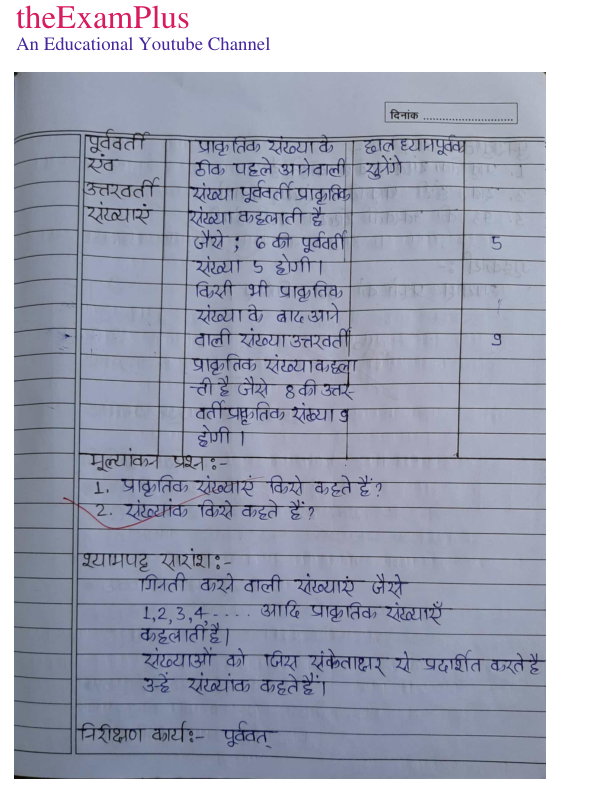 theExamPlus
An Educational Youtube Channel
दिनांक ..............................
पूर्ववर्ती प्राकृतिक संख्या के छात्र ध्यानपूर्वक
एवं ठीक पहले आनेवाली सुनेंगे
उत्तरवर्ती संख्या पूर्ववर्ती प्राकृतिक
संख्याएं संख्या कहलाती है
जैसे ; 6 की पूर्ववर्ती 5
संख्या 5 होगी।
किसी भी प्राकृतिक
संख्या के बाद आने
वाली संख्या उत्तरवर्ती 9
प्राकृतिक संख्या कहला
ती है जैसे 8 की उत्तर
वर्ती प्राकृतिक संख्या 9
होगी ।
मूल्यांकन प्रश्न :-
1. प्राकृतिक संख्याएं किसे कहते हैं?
2. संख्यांक किसे कहते हैं?
श्यामपट्ट सारांश:-
गिनती करने वाली संख्याएं जैसे
1,2,3,4,.... आदि प्राकृतिक संख्याएँ
कहलाती है।
संख्याओं को जिस संकेताक्षर से प्रदर्शित करते है
उन्हें संख्यांक कहते हैं।
निरीक्षण कार्य:- पूर्ववत्